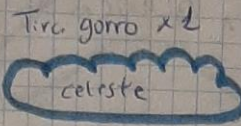 Tirc. gorro x1
celeste